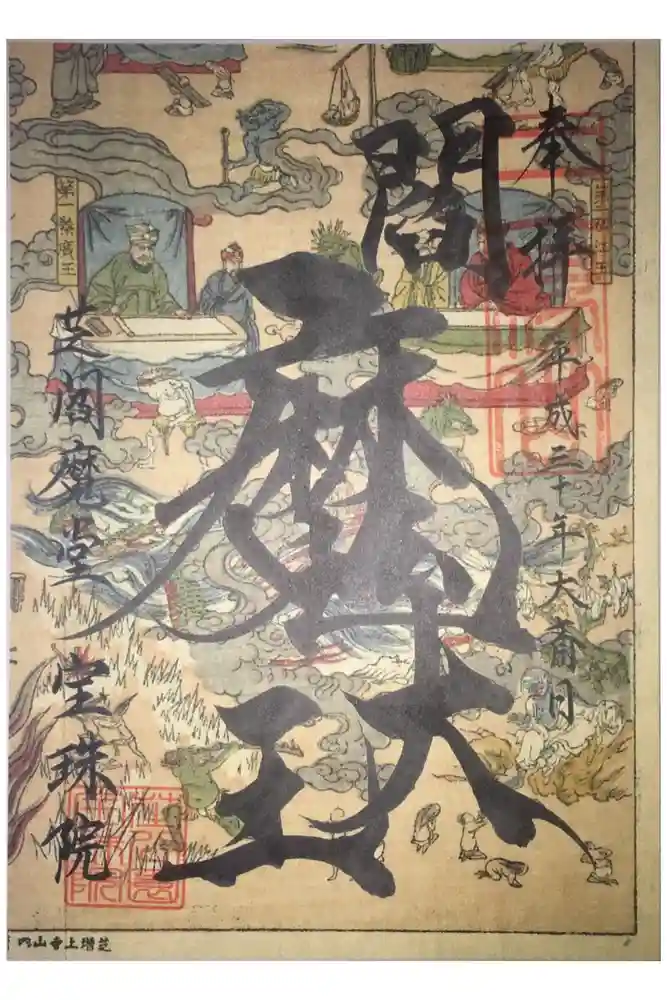 奉拝
平成三十年大斎日
閻魔大王
芝閻魔堂 宝珠院
第一秦廣王
芝増上寺山内